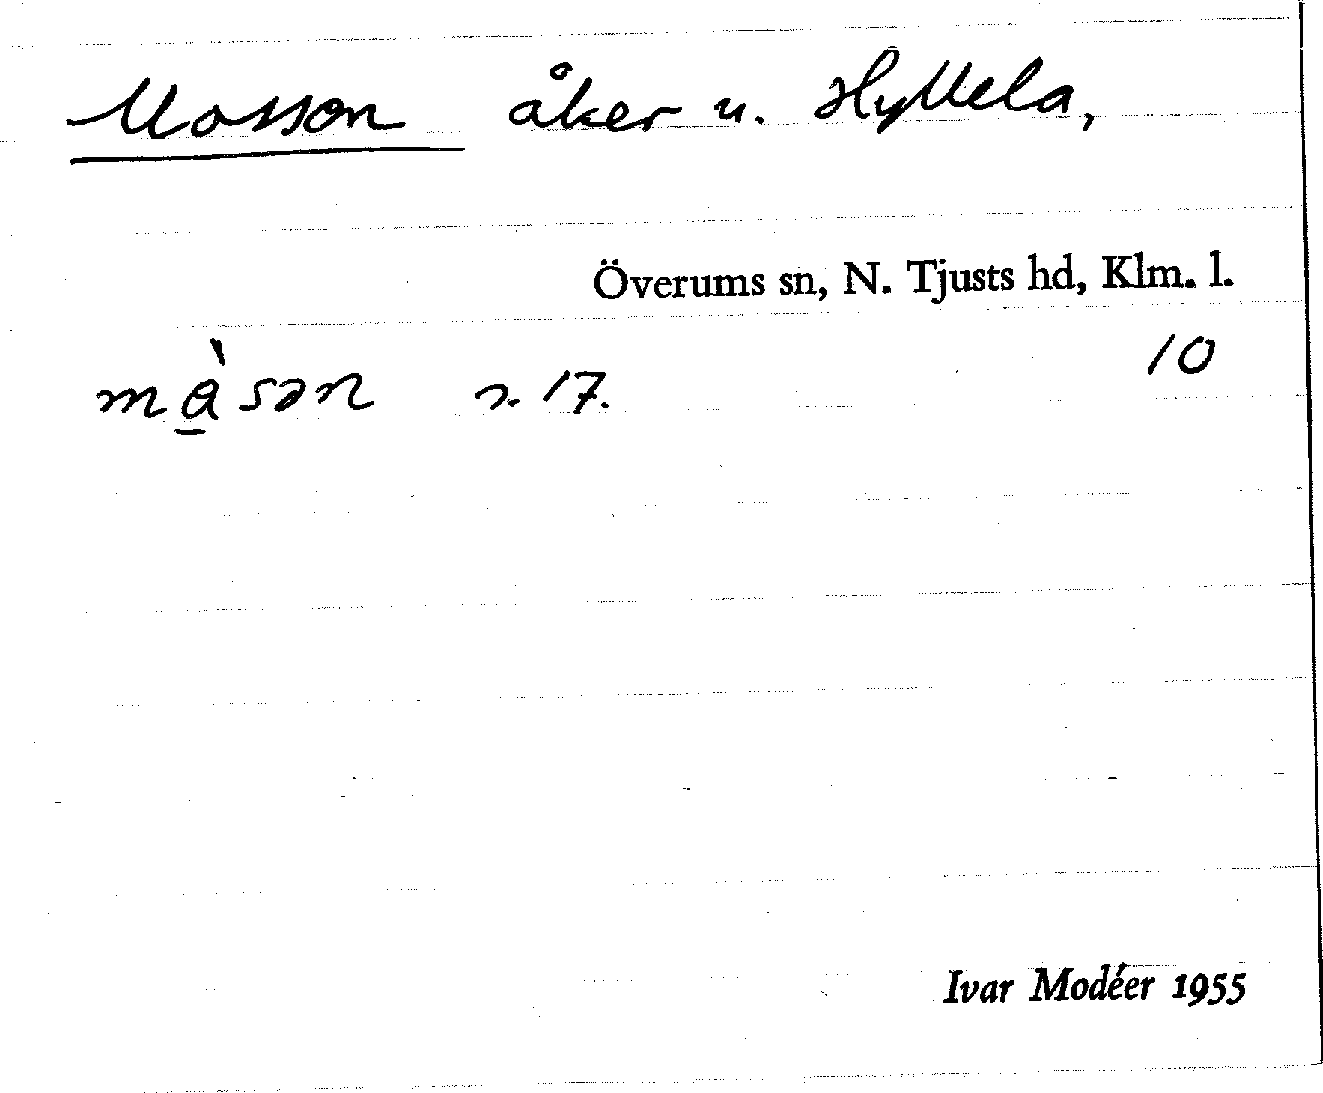 Mosson åker u. Hyllela,
Överums sn, N. Tjusts hd, Klm. l.
10
n. 17.
Ivar Modéer 1955